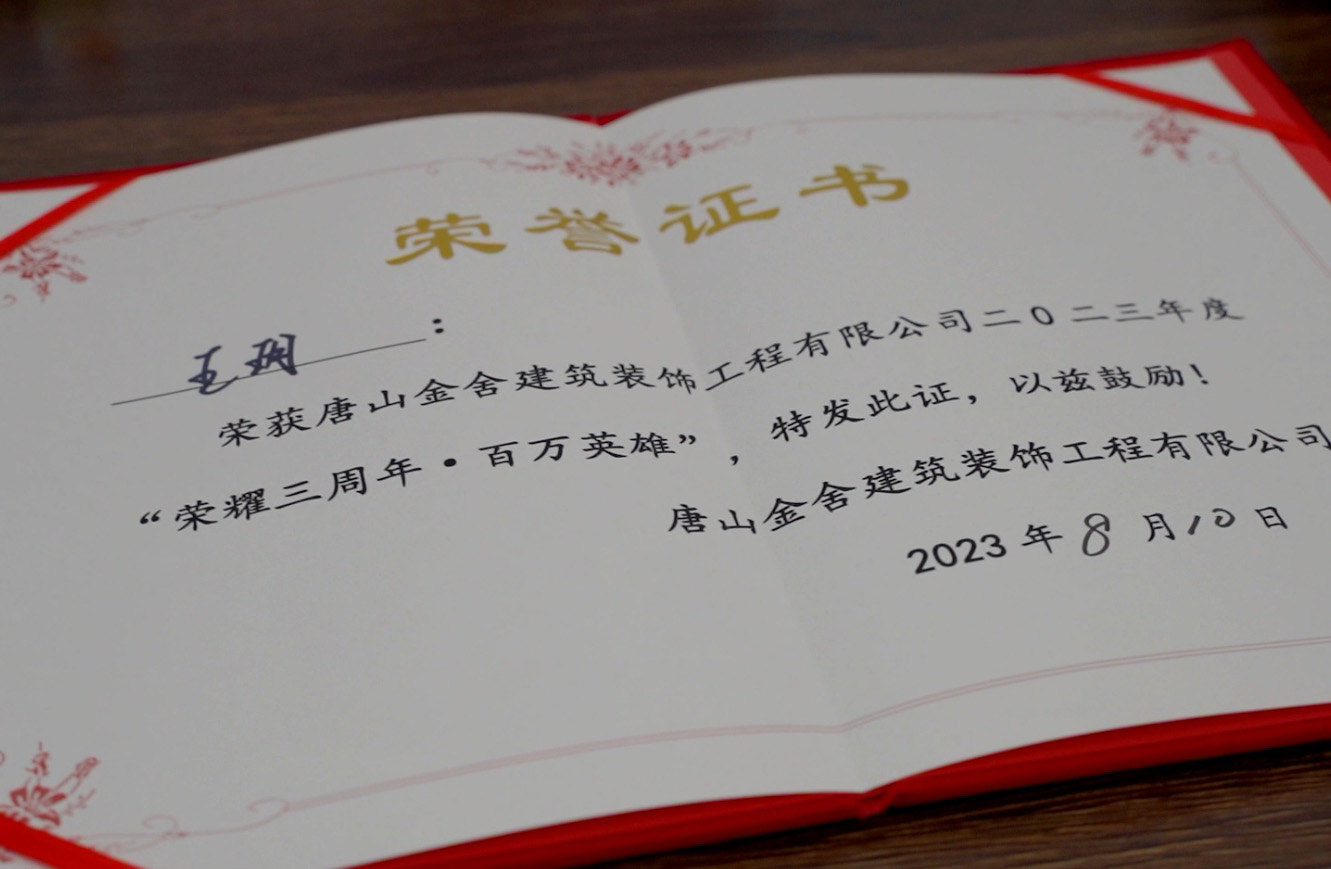 荣誉证书
王玥：
荣获唐山金舍建筑装饰工程有限公司二0二三年度
“荣耀三周年·百万英雄”，特发此证，以兹鼓励！
唐山金舍建筑装饰工程有限公司
2023年8月10日